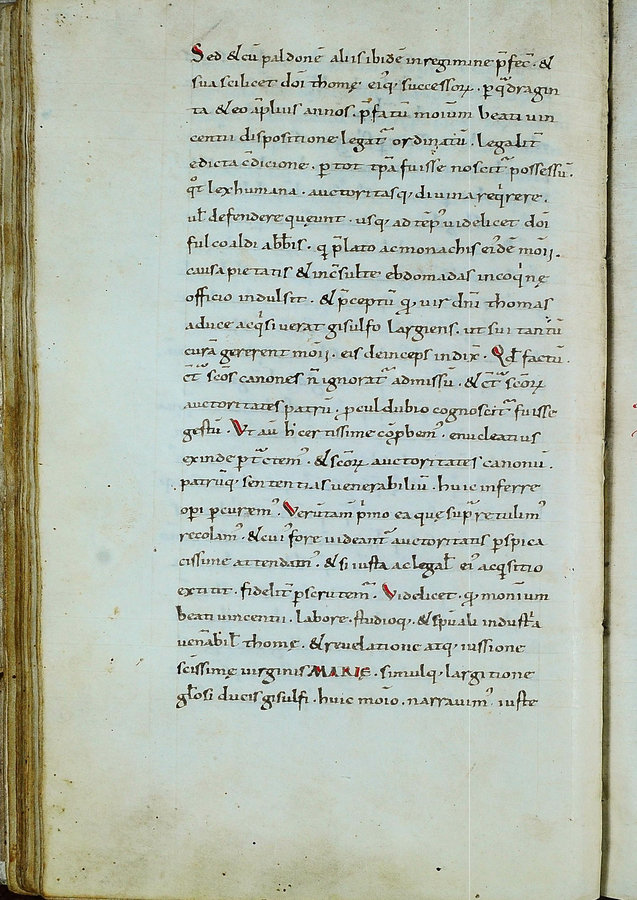 Sed & cū paldonē aliisibidē inregimine p̄fec̄ · &
sua scilicet dōi thomę eiꝰq; successoꝝ · p qͣdragin
ta · & eo āplius annos · p̄fatū moīum beati uin
centii dispositione legat̄ ordinatū · legalit̄
edicta c̄dicione · p tot tp̄a fuisse noscit̄ possessū ·
qͦt lex humana · auctoritasq; diuina reqͥrere ·
uł defendere queunt · usq; ad temp̄ uidelicet dōi
fulcoaldi abb̄is · qͥ p̄lato ac monachis eiꝰdē moīi ·
causa pietatis & incs̄ulte ebdomadas in coqͥnę
officio indulsit · & p̄ceptū qͦ uir dn̄i thomas
a duce acqͥsiuerat gisulfo largiens · ut sui tantū
curā gererent moīi · eis deinceps indix̄ · Qd̄ factū
c̄t̄ sc̄os canones n̄ ignorat̄ admissū · & c̄t̄ sc̄oꝝ
auctoritates patrū · pcul dubio cognoscit̄ fuisse
gestū · Vt aū h̄ certissime cōpbemꝰ · enucleatius
exinde ptc̄temꝰ · & sc̄oꝝ auctoritates canonū ·
patrūq; sententias uenerabiliū · huic inferre
opi pcuremꝰ · Verūtam̄ pͥmo ea quę supͣ retulimꝰ
recolamꝰ · & cuiꝰ fore uideant̄ auctoritatis pspica
cissime attendamꝰ · & si iusta ac legał eiꝰ acqͥsitio
extitit · fidelit̄ pscrutemꝰ · Videlicet · qͦ moniū
beati uincentii · labore · studioq; · & sp̄uali industͥa
uen̄abił thomę · & reuelatione atq; iussione
sc̄issimę uirginis MARIĘ · simulq; largitione
gło̅si ducis gisulfi · huic moīo · narrauimꝰ · iuste